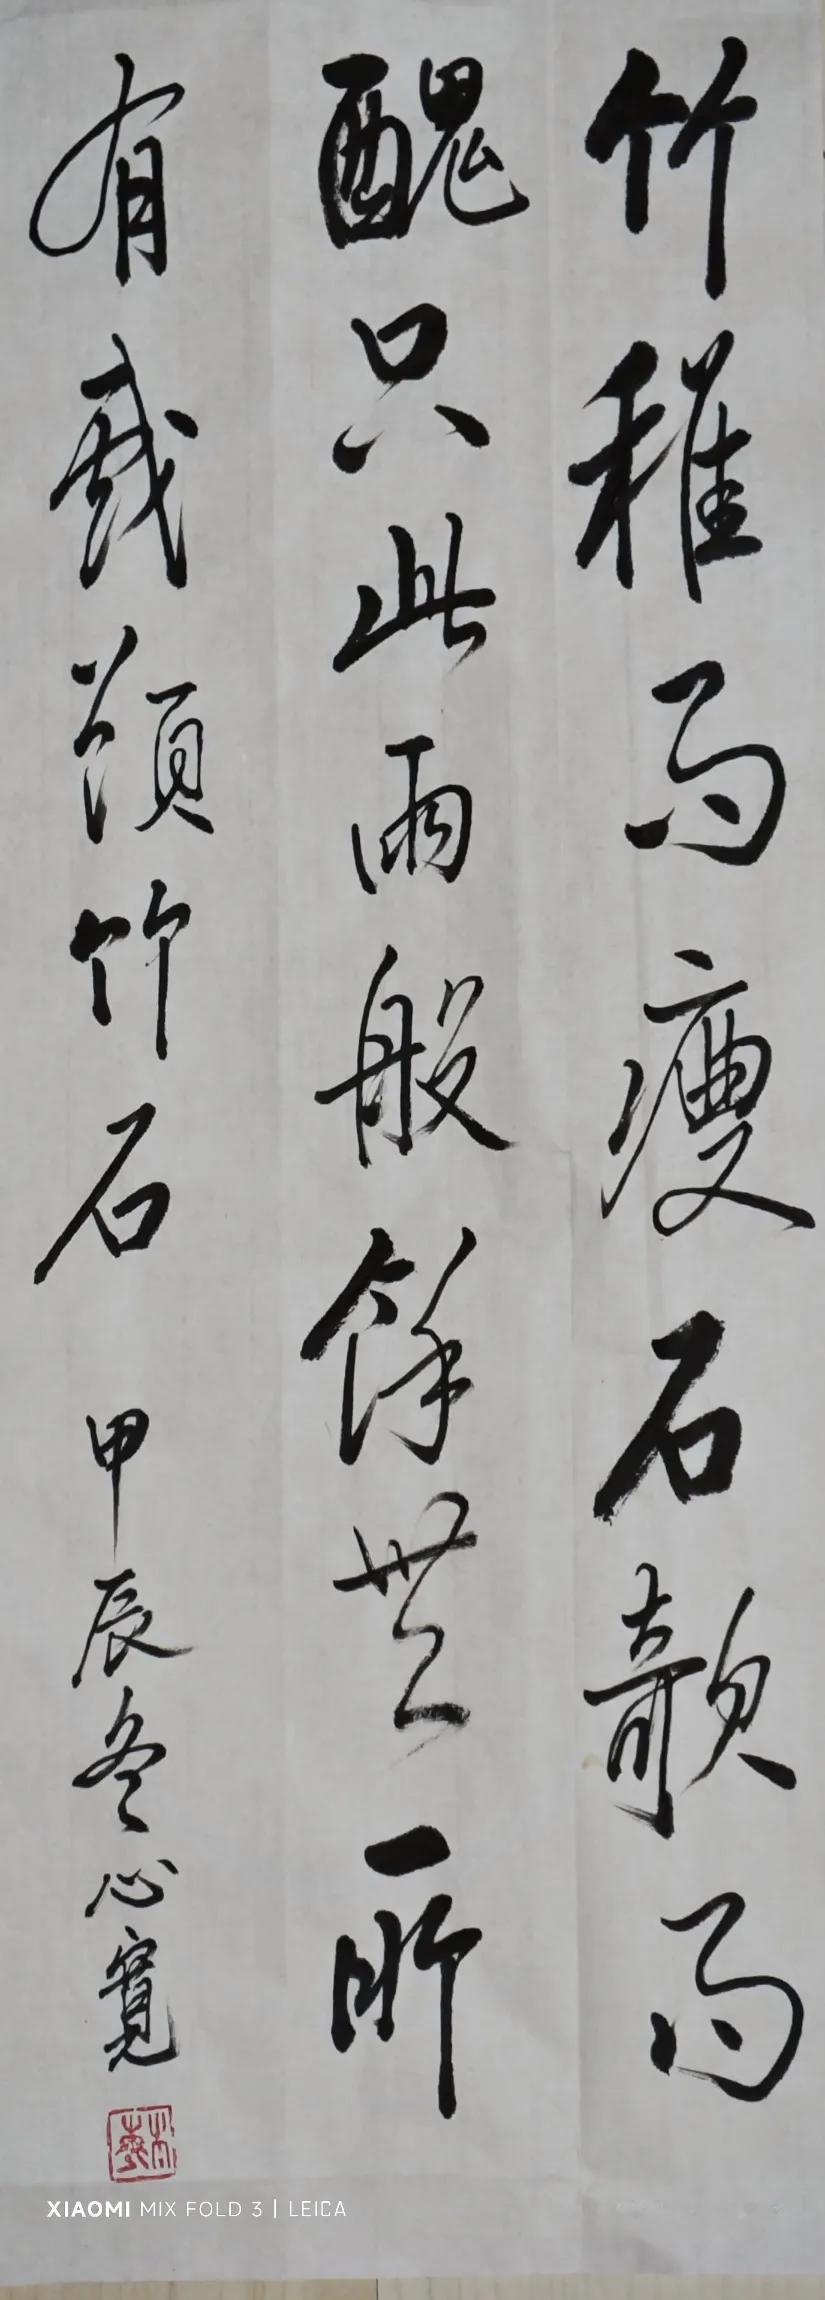 竹稚而瘦石欹而
醜只此兩般餘無所
有戲竹石 甲辰冬心寬
XIAOMI MIX FOLD 3 | LEICA